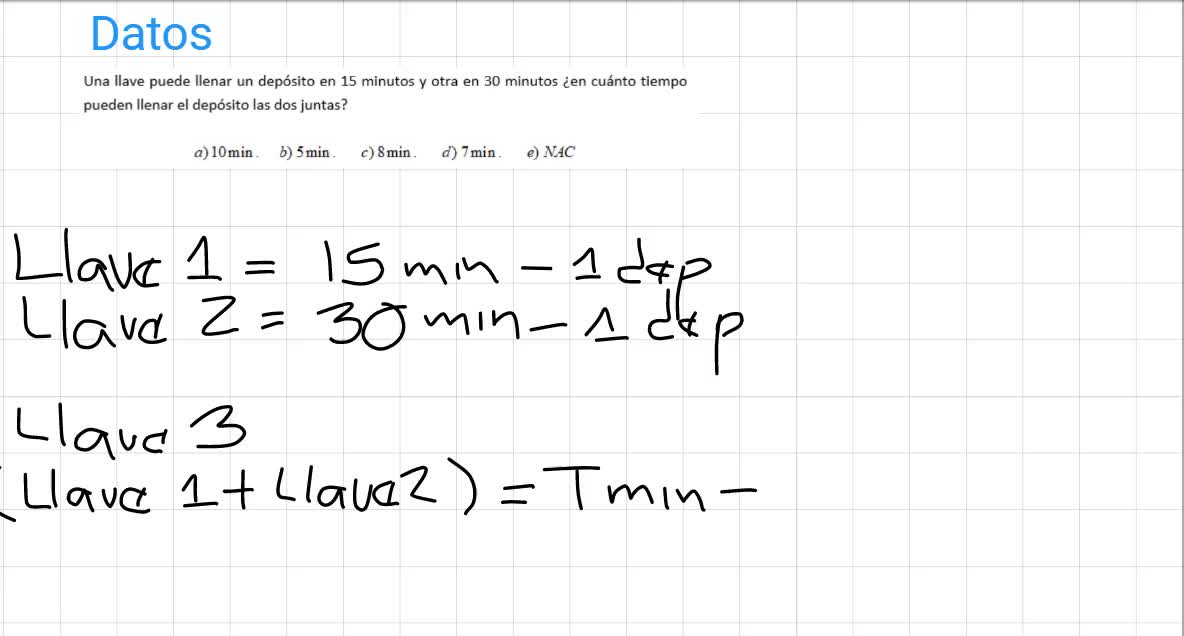 Datos
Una llave puede llenar un depósito en 15 minutos y otra en 30 minutos ¿en cuánto tiempo
pueden llenar el depósito las dos juntas?
a) 10 min. b) 5 min. c) 8 min. d) 7 min. e) NAC
Llave 1 = 15 min - 1 dep
Llave 2 = 30 min - 1 dep
Llave 3
(Llave 1 + Llave 2) = T min -